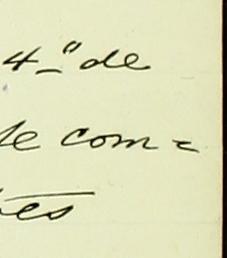 4_" de
te com=
tes